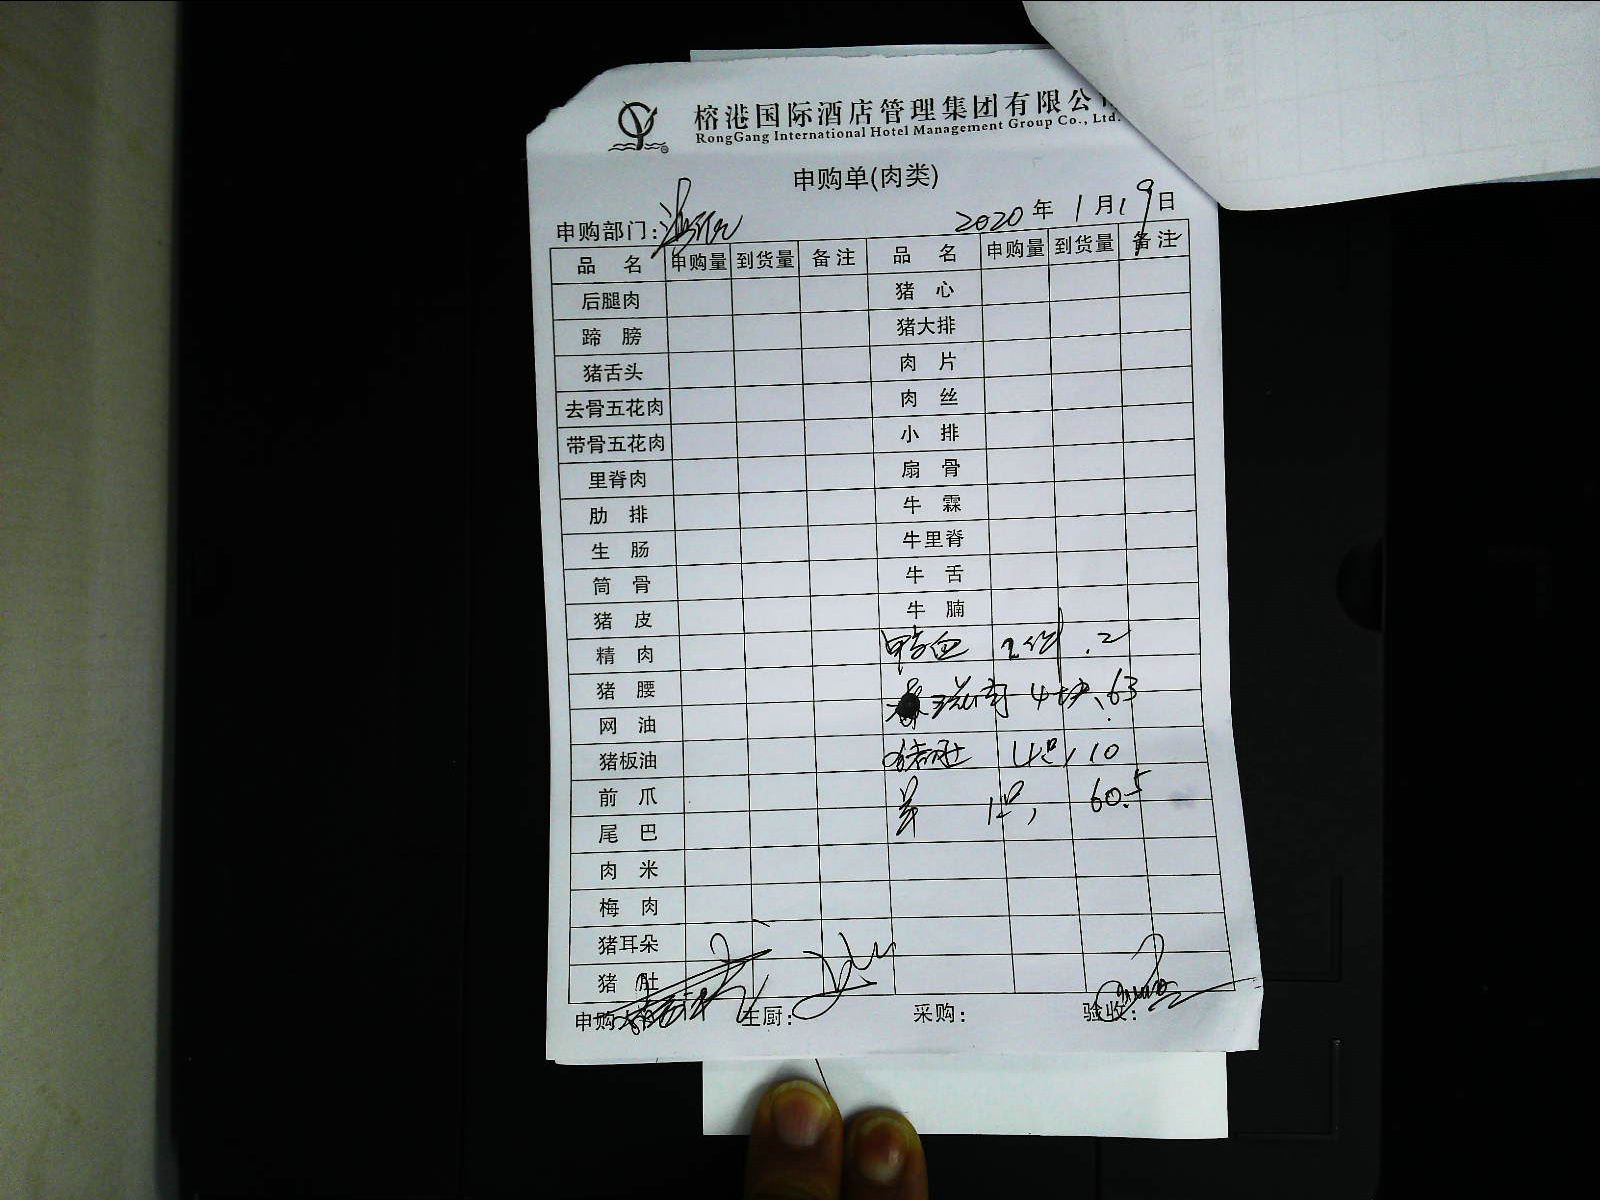 榕港国际酒店管理集团有限公
RongGang International Hotel Management Group Co., Ltd.
申购单(肉类)
申购部门: 2020年1月19日
品名 申购量 到货量 备注 品名 申购量 到货量 备注
后腿肉 猪心
蹄膀 猪大排
猪舌头 肉片
去骨五花肉 肉丝
带骨五花肉 小排
里脊肉 扇骨
肋排 牛霖
生肠 牛里脊
筒骨 牛舌
猪皮 牛腩
精肉 鸭血 2 2
猪腰 4块 63
网油
猪板油 猪肚 4只 10
前爪 羊 1只 60.5
尾巴
肉米
梅肉
猪耳朵
猪肚
申购 主厨: 采购: 验收: